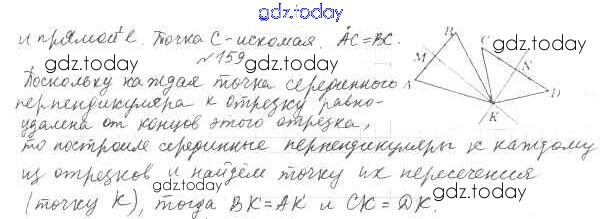 gdz.today
и прямой ℓ. Точка С - искомая. АС = ВС.
gdz.today gdz.today
№159
Поскольку каждая точка серединного
gdz.today gdz.today
перпендикуляра к отрезку равно-
удалена от концов этого отрезка,
gdz.today gdz.today
то построим серединные перпендикуляры к каждому
из отрезков и найдём точку их пересечения
gdz.today gdz.today
(точку К), тогда ВК = АК и СК = DК.
gdz.today
B
C
M
N
A
D
K